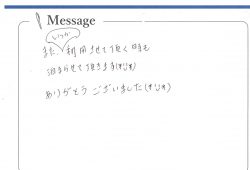 Message
いつか
また 利用せて頂く時も
泊まらせて頂きます
ありがとうございました